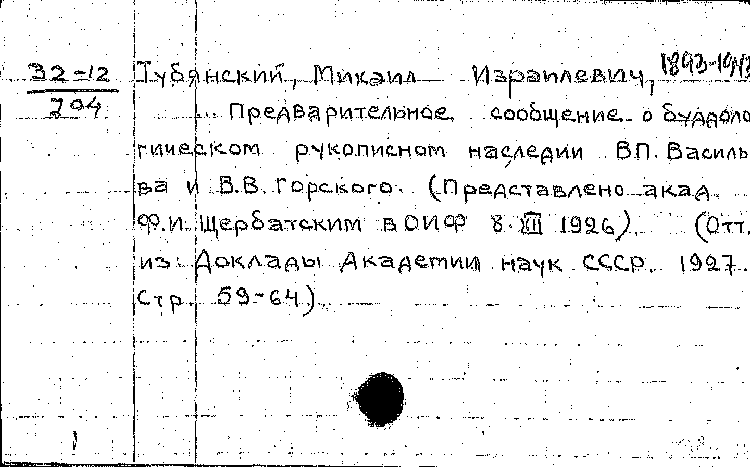 32-12
204
Тубянский, Микаил Израилевич, 1893-1943
Предварительное сообщение о буддоло
гическом рукописном наследии В.П. Василь
ва и В.В. Горского. (Представлено акад.
Ф.И. Щербатским в ОИФ 8. XII 1926) (Отт.
из: Доклады Академии наук СССР. 1927.
Стр. 59-64.)